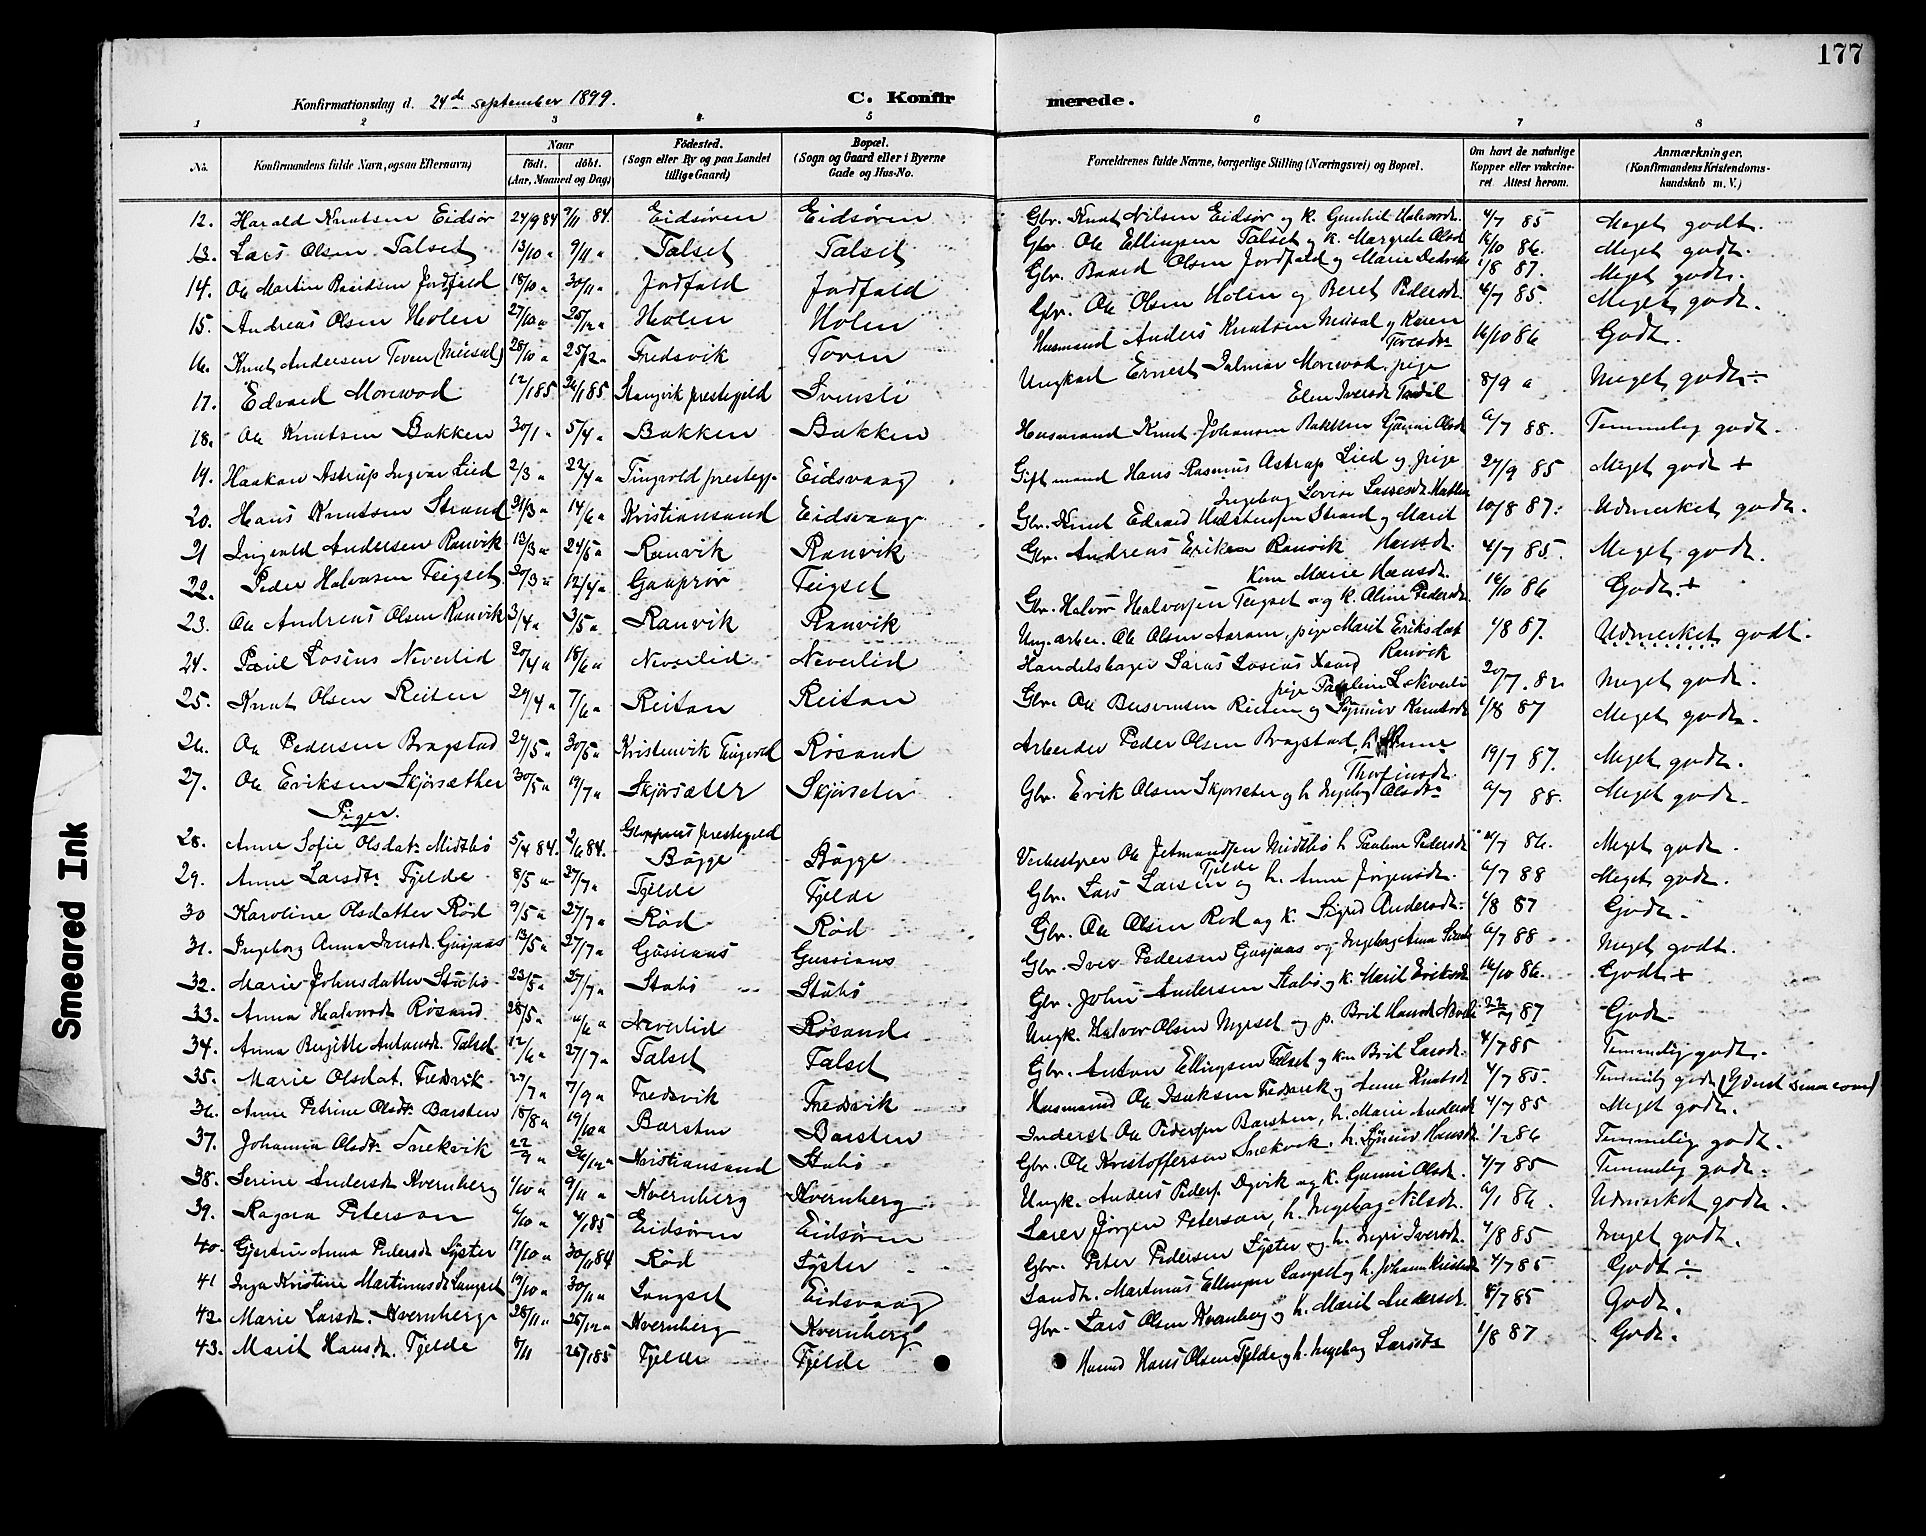 177
Konfirmationsdag d. 24de september 1899.
C. Konfirmerede.
1 2 3 4 5 6 7 8
No. Konfirmandens fulde Navn, ogsaa Efternavn) Naar født. døbt. (Aar, Maaned og Dag) Fødested. (Sogn eller By og paa Landet tillige Gaard) Bopæl. (Sogn og Gaard eller i Byerne Gade og Hus-No. Forældrenes fulde Navne, borgerlige Stilling (Næringsvei) og Bopæl. Om havt de naturlige Kopper eller vakcineret Attest herom. Anmærkninger. (Konfirmandens Kristendomskundskab m. V.)
12. Harald Knutsen Eidsør 24/9 84 9/11 84. Eidsøren Eidsøren Gbr. Knut Nilsen Eidsør og k. Gunhil Halvorsdt. 4/7 85 Meget godt.
13. Lars Olsen Talset 13/10 " 9/11 " Talset Talset Gbr. Ole Ellingsen Talset og k. Margrete Olsd 16/10 86. Meget godt.
14. Ole Martin Baardsen Jordfald 18/10 " 30/11 " Jordfald Jordfald Gbr. Baard Olsen Jordfald og Marie 1/8 87. Meget godt.
15. Andreas Olsen Holen 27/10 " 26/12 " Holen Holen Gbr. Ole Olsen Holen og Beret Pedersdt. 4/7 85. Meget godt.
16. Knut Andersen Toven (Meisal) 28/10 " 25/12 " Fredsvik Toven Husmand Anders Knutsen Meisal og Karen Toresdtr 16/10 86 Godt.
17. Edvard Morewod 12/1 85 26/1 85 Stangvik prestegjeld Svensli Ungkarl Ernest Dalmar Morewod, pige Elen Iversdt Tordal 8/9 " Meget godt ÷
18. Ole Knutsen Bakken 30/1 " 5/4 " Bakken Bakken Husmand Knut Johansen Bakken Gjønni Olsdt 6/7 88. Temmelig godt.
19. Haakon Astrup Ingvar Lied 2/3 " 22/4 " Tingvold prestegj. Eidsvaag Gift mand Hans Rasmus Astrup Lied og pige Ingebog Lovise Lassesdt 27/9 85 Meget godt +
20. Hans Knutsen Strand 21/3 " 14/6 " Kristiansund Eidsvaag Gbr. Knut Edvard Halstensen Strand og Marit Hansdt. 10/8 87. Udmerket godt.
21 Ingvald Andersen Ranvik 13/3 " 24/5 " Ranvik Ranvik Gbr. Andreas Eriksen Ranvik Kone Marie Hansdt. 4/7 85. Meget godt.
22. Peder Halvorsen Teigset 20/3 " 12/4 " Gauprør Teigset Gbr. Halvor Halvorsen Teigset og k. Aline Pedersdt. 16/10 86 Godt. +
23. Ole Andreas Olsen Ranvik 3/4 " 3/5 " Ranvik Ranvik Ung. arber. Ole Olsen Aaram, pige Marit Eriksdat Ranvik 1/8 87. Udmerket godt.
24. Paul Losius Neverlid 20/4 " 18/6 " Neverlid Neverlid Handelsbager Laras Losius pige Pauline L. Neverli 20/7. 82 Meget godt.
25. Knut Olsen Reiten 29/4 " 7/6 " Reitan Reitan Gbr. Ole Reiten og Synnøv Knutsdt 1/8 87 Meget godt.
26. Ole Pedersen Bragstad 29/5 " 30/5 " Kristenvik Tingvold Røsand Arbeider Peder Olsen Bragstad, h. Anne Thorfinsdt. 19/7 87. Meget godt.
27. Ole Eriksen Skjørsæther 30/5 " 19/7 " Skjørsæter Skjørseter Gbr. Erik Olsen Skjørseter og h. Ingebog Olsdtr 6/7 88. Meget godt.
Piger.
28. Anne Sofie Olsdatr Midtbø 5/4 84. 2/6 84. Gloppens prestegjeld Bøgge Bøgge Verbestyrer Ole Jetmundsen Midtbø h. Pauline Pedersdt 21/7 86. Meget godt.
29. Anne Larsdtr Tjelde 8/5 " 27/7 " Tjelde Tjelde Gbr. Lars Larsen Tjelde og h. Anne Jørgensdt. 6/7 88 Meget godt.
30 Karoline Olsdatter Rød 9/5 " 27/7 " Rød Rød Gbr. Ole Olsen Rød og k. Sigrid Andersdt. 1/8 87 Godt.
31. Ingeborg Anna Iversdt. Gusjaas 13/5 " 27/7 " Gussiaas Gussiaas Gbr. Iver Pedersen Gusjaas og Ingebog Anna 6/7 88 Meget godt.
32. Marie Johnsdatter Stubø 23/5 " 27/7 " Stubø Stubø Gbr. John Andersen Stubø og k. Marit Eriksdt 16/10 86. Godt +
33. Anna Halvorsdt Røsand 28/5 " 11/6 " Neverlid Røsand Ungk. Halvor Olsen Myrset og p. Brit Hansdt Neverli 22/7 87 Godt.
34. Anna Birgitte Antonsdt. Talset 12/6 " 27/7 " Talset Talset Gbr. Anton Ellingsen Talset og kon Brit Larsdt. 4/7 85 Temmelig godt.
35. Marie Olsdat. Fredsvik 27/7 " 7/9 " Fredsvik Fredsvik Husmand Ole Isaksen Fredsvik og Anne Knutsdt 4/7 85. Temmelig godt
36. Anne Petrine Olsdt. Barsten 18/8 " 19/10 " Barsten Barsten Inderst Ole Pedersen Barsten, h. Marie Andersdt 4/7 85 Meget godt.
37. Johanna Olsdt. Snekvik 22/9 " 26/12 " Kristiansund Stubø Gbr. Ole Kristoffersen Snekvik, h. Synnøv Hansdt. 1/2 86 Temmelig godt.
38. Serine Andersdt Kvernberg 4/10 " 9/11 " Kvernberg Kvernberg Ungk. Anders Peders. Dyvik og k. Gunni Olsdt. 4/7 85 Temmelig godt.
39. Ragna Peterson 6/10 " 4/1 85 Eidsøren Eidsøren Lærer Jørgen Peterson, h. Ingebog Nilsdt. 6/1 86. Udmerket godt.
40. Gjertin Anna Pedersdt Syster 17/10 " 30/11 84 Rød Syster Gbr. Peter Pedersen Syster og h. Ingri Iversdt. 4/8 85 Meget godt.
41 Inga Kristine Martinusdt Langset 19/10 " 30/11 " Langset Eidsvaag Landh. Martinus Ellingsen Langset og h. Johanna 4/7 85 Godt ÷
42. Marie Larsdt. Kvernberg 28/11 " 26/12 " Kvernberg Kvernberg Gbr. Lars Olsen Kvernberg og h. Marit Andersdt. 8/7 85 Godt.
43. Marit Hansdt. Tjelde 8/11 26/1 85 Tjelde Tjelde Husmd Hans Olsen Tjelde og h. Ingebog Larsdtr 1/8 87 Godt.
Smeared Ink